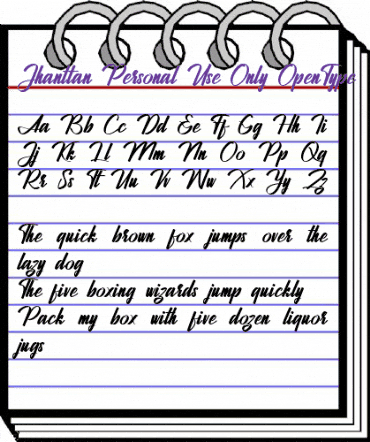 Jhanttan Personal Use Only OpenType
Aa Bb Cc Dd Ee Ff Gg Hh Ii
Jj Kk Ll Mm Nn Oo Pp Qq
Rr Ss Tt Uu Vv Ww Xx Yy Zz
The quick brown fox jumps over the
lazy dog
The five boxing wizards jump quickly
Pack my box with five dozen liquor
jugs